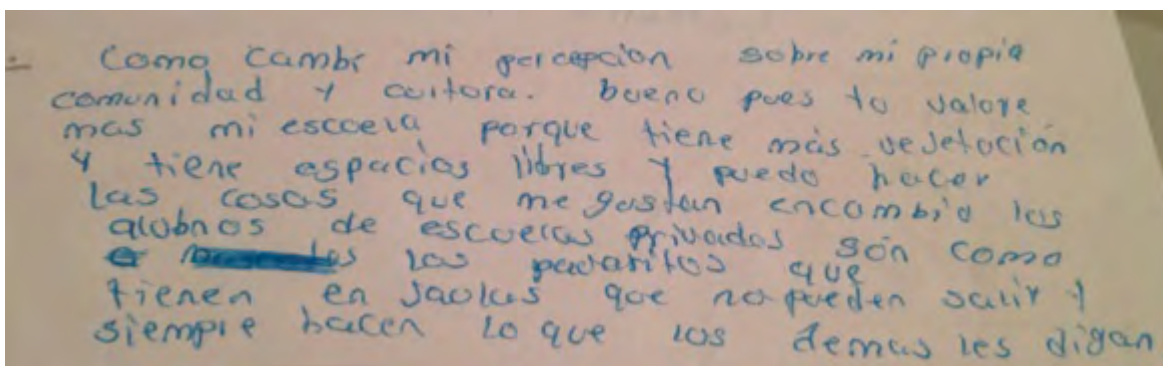 Como Cambi mi percepcion sobre mi propia
comunidad y cultora. bueno pues yo valore
mas mi escoela porque tiene más vejetación
y tiene espacios libres y puedo hacer
las cosas que me gustan encambio los
alubnos de escuelas privadas són como
los pajaritos que
tienen en jaolas que no pueden salir y
siempre hacen lo que los demas les digan